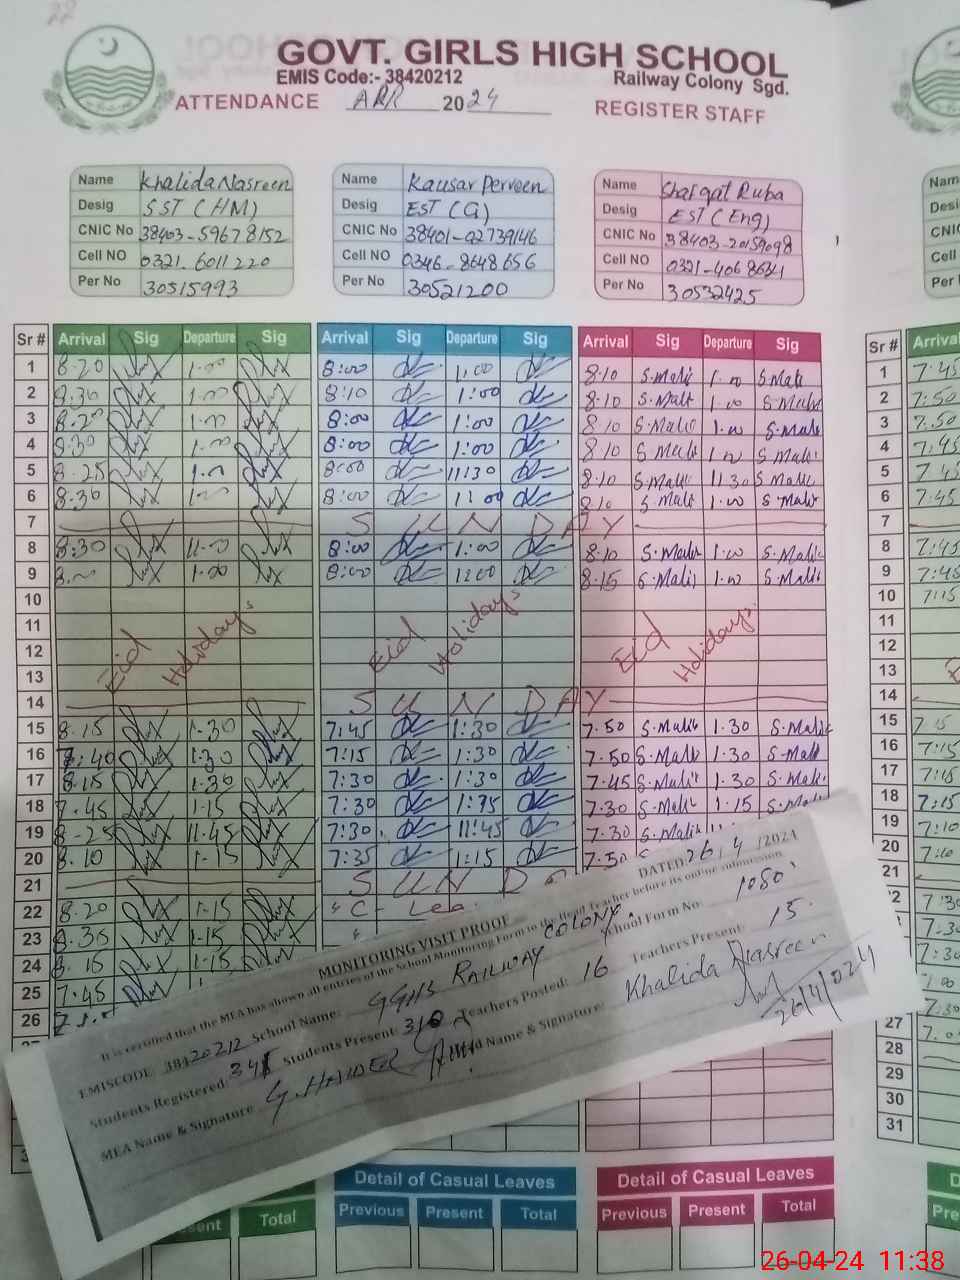 22
GOVT. GIRLS HIGH SCHOOL
EMIS Code:- 38420212 Railway Colony Sgd.
ATTENDANCE APR 2024 REGISTER STAFF
Name Khalida Nasreen Name Kausar Perveen Name Shafqat Ruba
Desig SST (HM) Desig EST (G) Desig EST (Eng)
CNIC No 38403-59678152 CNIC No 38401-02739146 CNIC No 38403-20159098
Cell NO 0321-6011220 Cell NO 0346-8648656 Cell NO 0321-4068641
Per No 30515993 Per No 30521200 Per No 30532425
Sr # Arrival Sig Departure Sig Arrival Sig Departure Sig Arrival Sig Departure Sig Sr # Arrival
1 8.20 1.00 8:00 1:00 8.10 S.Malik 1.00 S.Malik 1 7.45
2 8.30 1.00 8:10 1:00 8.10 S.Malik 1.00 S.Malik 2 7.50
3 8.20 1.00 8:00 1:00 8.10 S.Malik 1.00 S.Malik 3 7.50
4 8.30 1.00 8:00 1:00 8.10 S.Malik 1.00 S.Malik 4 7.45
5 8.25 1.00 8:00 11:30 8.10 S.Malik 11.30 S.Malik 5 7.45
6 8.30 1.00 8:00 1:00 8.10 S.Malik 1.00 S.Malik 6 7.45
7 SUNDAY 7
8 8:30 11.00 8:00 1:00 8.10 S.Malik 1.00 S.Malik 8 7:45
9 8.00 1.00 8:00 1:00 8.15 S.Malik 1.00 S.Malik 9 7:45
10 10 7:15
11 11
12 Eid Holidays Eid Holidays Eid Holidays 12
13 13
14 SUNDAY 14
15 8.15 1.30 7:45 1:30 7.50 S.Malik 1.30 S.Malik 15 7.15
16 7:40 1:30 7:15 1:30 7.50 S.Malik 1.30 S.Malik 16 7:15
17 8.15 1.30 7:30 1:30 7.45 S.Malik 1.30 S.Malik 17 7:15
18 7.45 1.15 7:30 1:15 7.30 S.Malik 1.15 S.Malik 18 7:15
19 8.25 11.45 7:30 11:45 7.30 S.Malik 19 7:10
20 8.10 1.15 7:35 1:15 7.50 20 7:10
21 SUND 21
22 8.20 1.15 C- Lea 7:30
23 8.30 1.15
24 8.15 1.15 7:30
25 7.45
26
27 7.0
28
29
30
31
MONITORING VISIT PROOF DATED 26/4/2024
It is certified that the MEA has shown all entries of the School Monitoring Form to the Head Teacher before its online submission
EMISCODE 38420212 School Name: GGHS RAILWAY COLONY. School Form No: 1080
Students Registered: 341 Students Present: Teachers Posted: 16 Teachers Present: 15
MEA Name & Signature: G. HAIDER Name & Signature: Khalida Nasreen
26/4/024
Detail of Casual Leaves Detail of Casual Leaves
sent Total Previous Present Total Previous Present Total
26-04-24 11:38